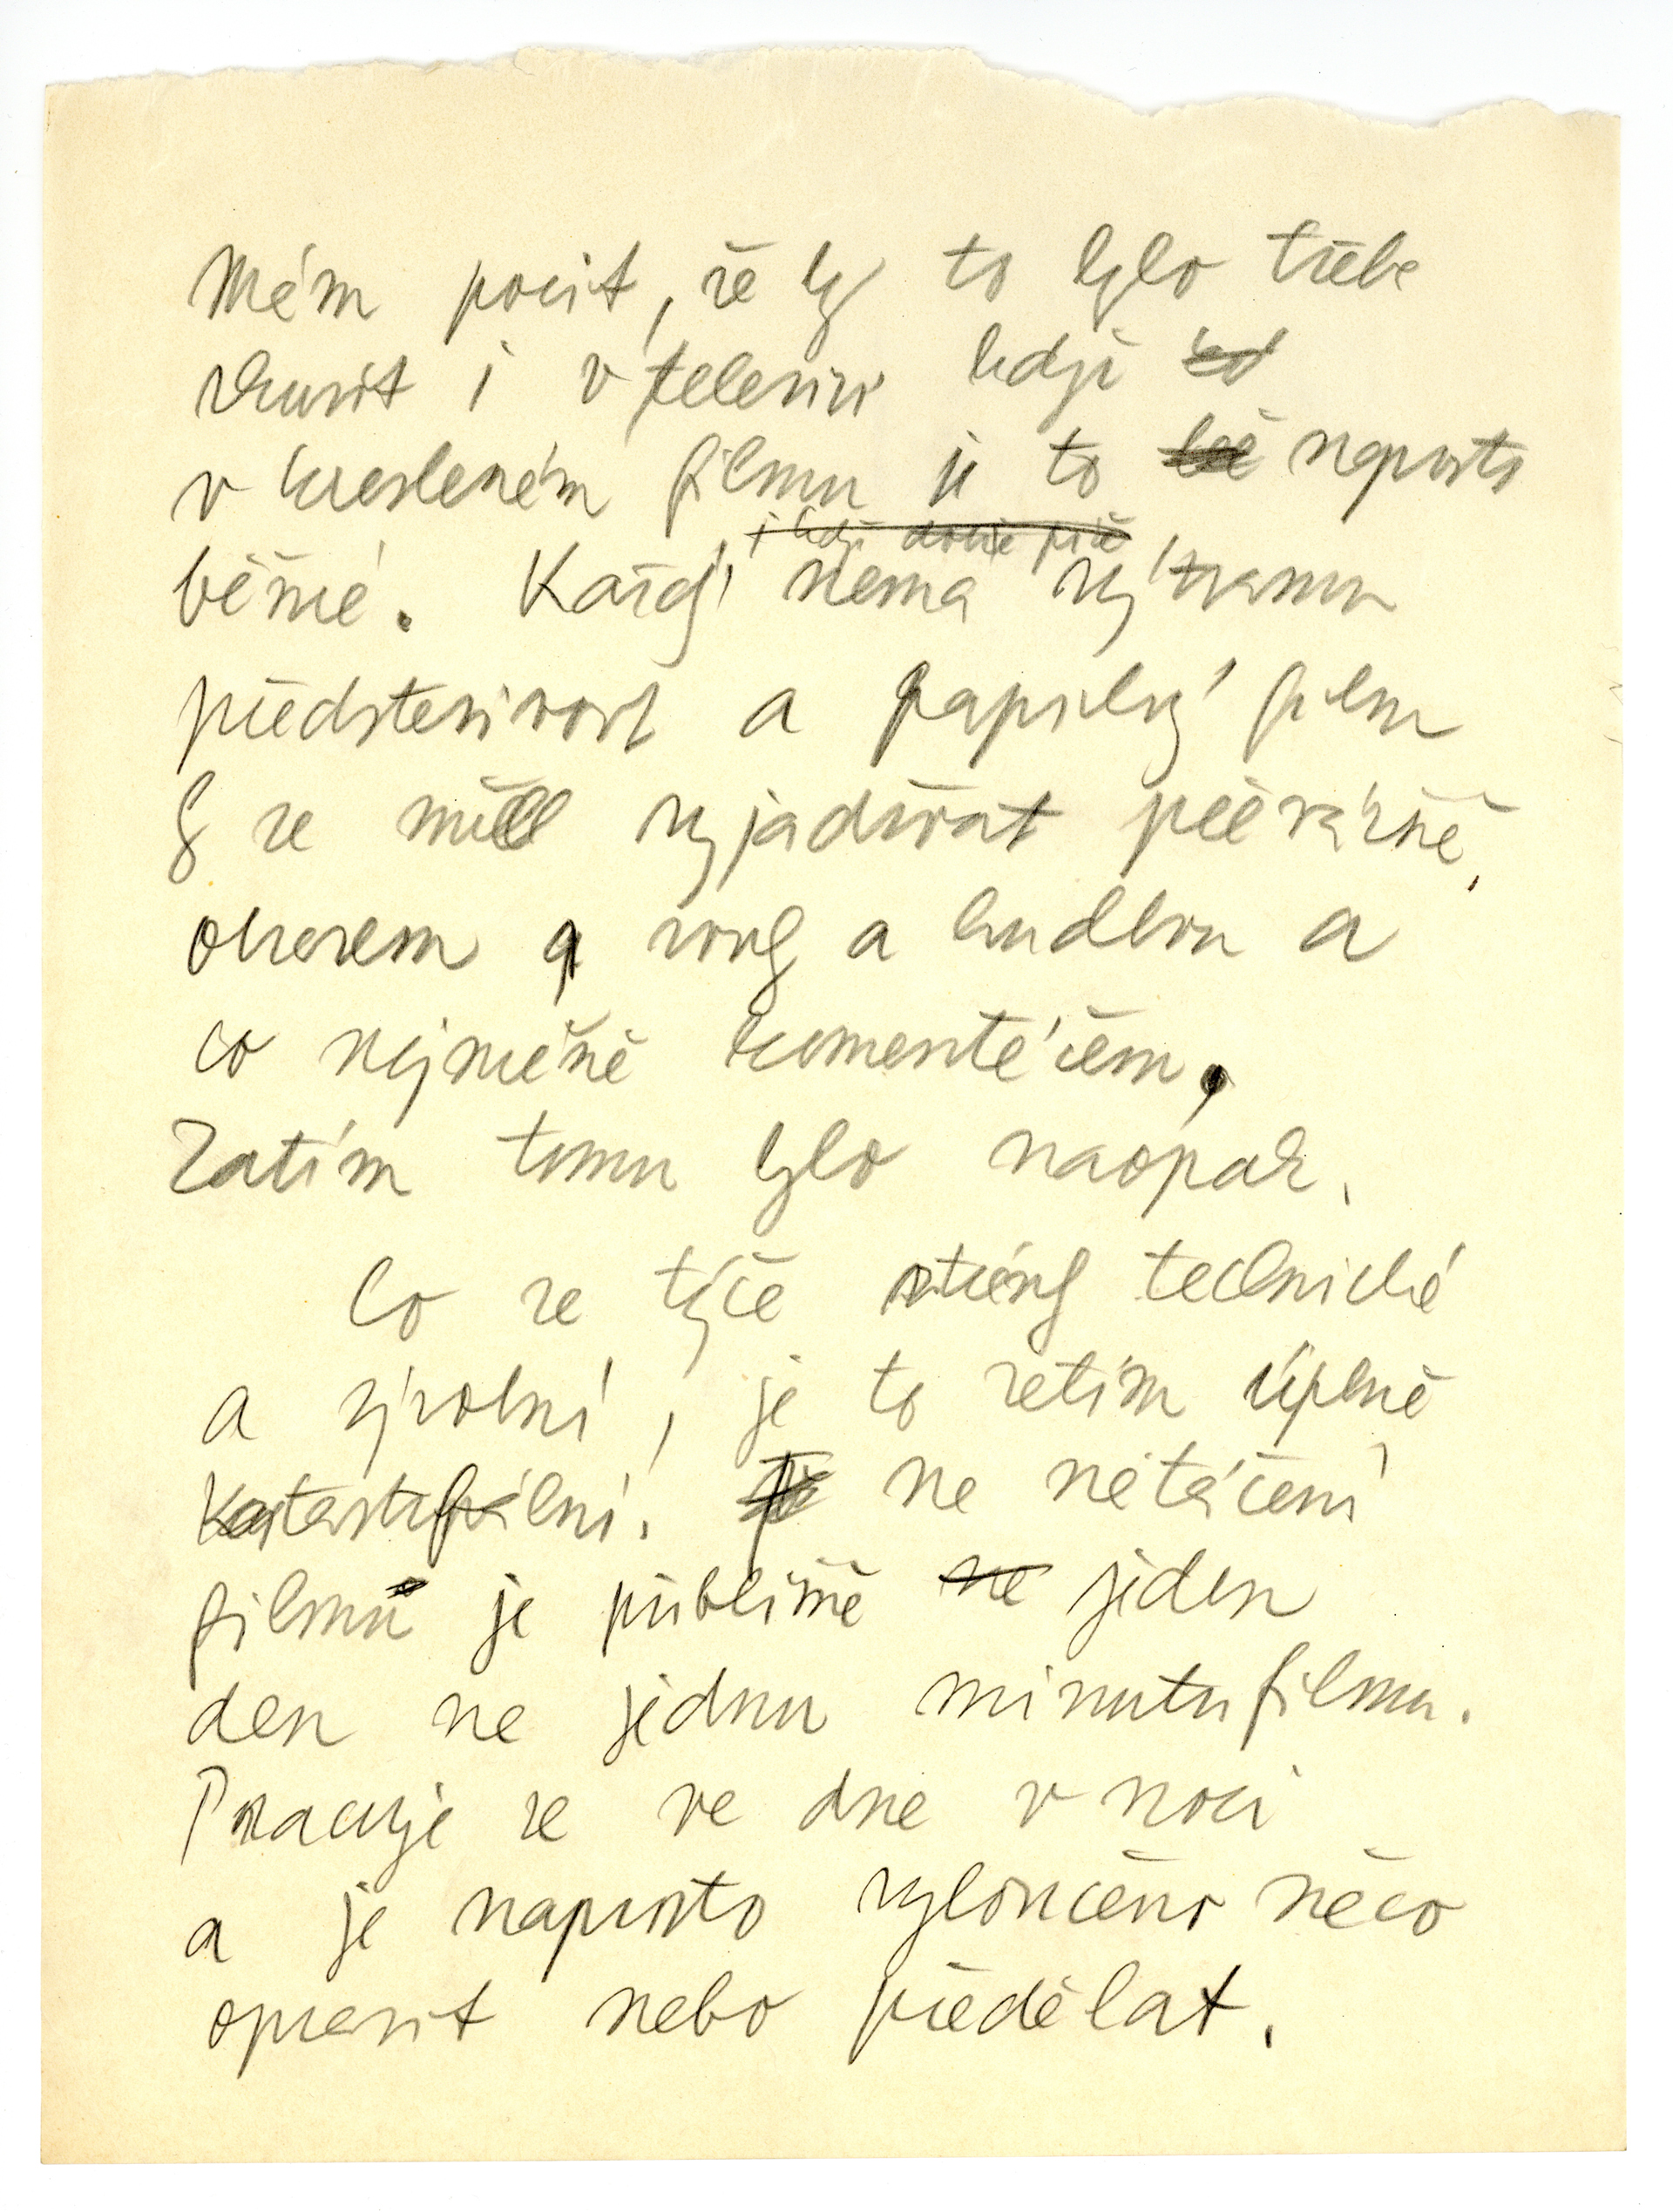 Mám pocit, že by to bylo třeba
zkusit i v televizi když
v kresleném filmu je to naprosto
běžné. Každý nemá výtvarnou
představivost a kapslový film
by se měl vyjadřovat převážně,
obrazem, zvuky a hudbou a
co nejméně komentářem.
Zatím tomu bylo naopak.
Co se týče stránky technické
a výrobní, je to zatím úplně
katastrofální. Na natáčení
filmů je přibližně jeden
den na jednu minutu filmu.
Pracuje se ve dne v noci
a je naprosto vyloučeno něco
opravit nebo předělat.